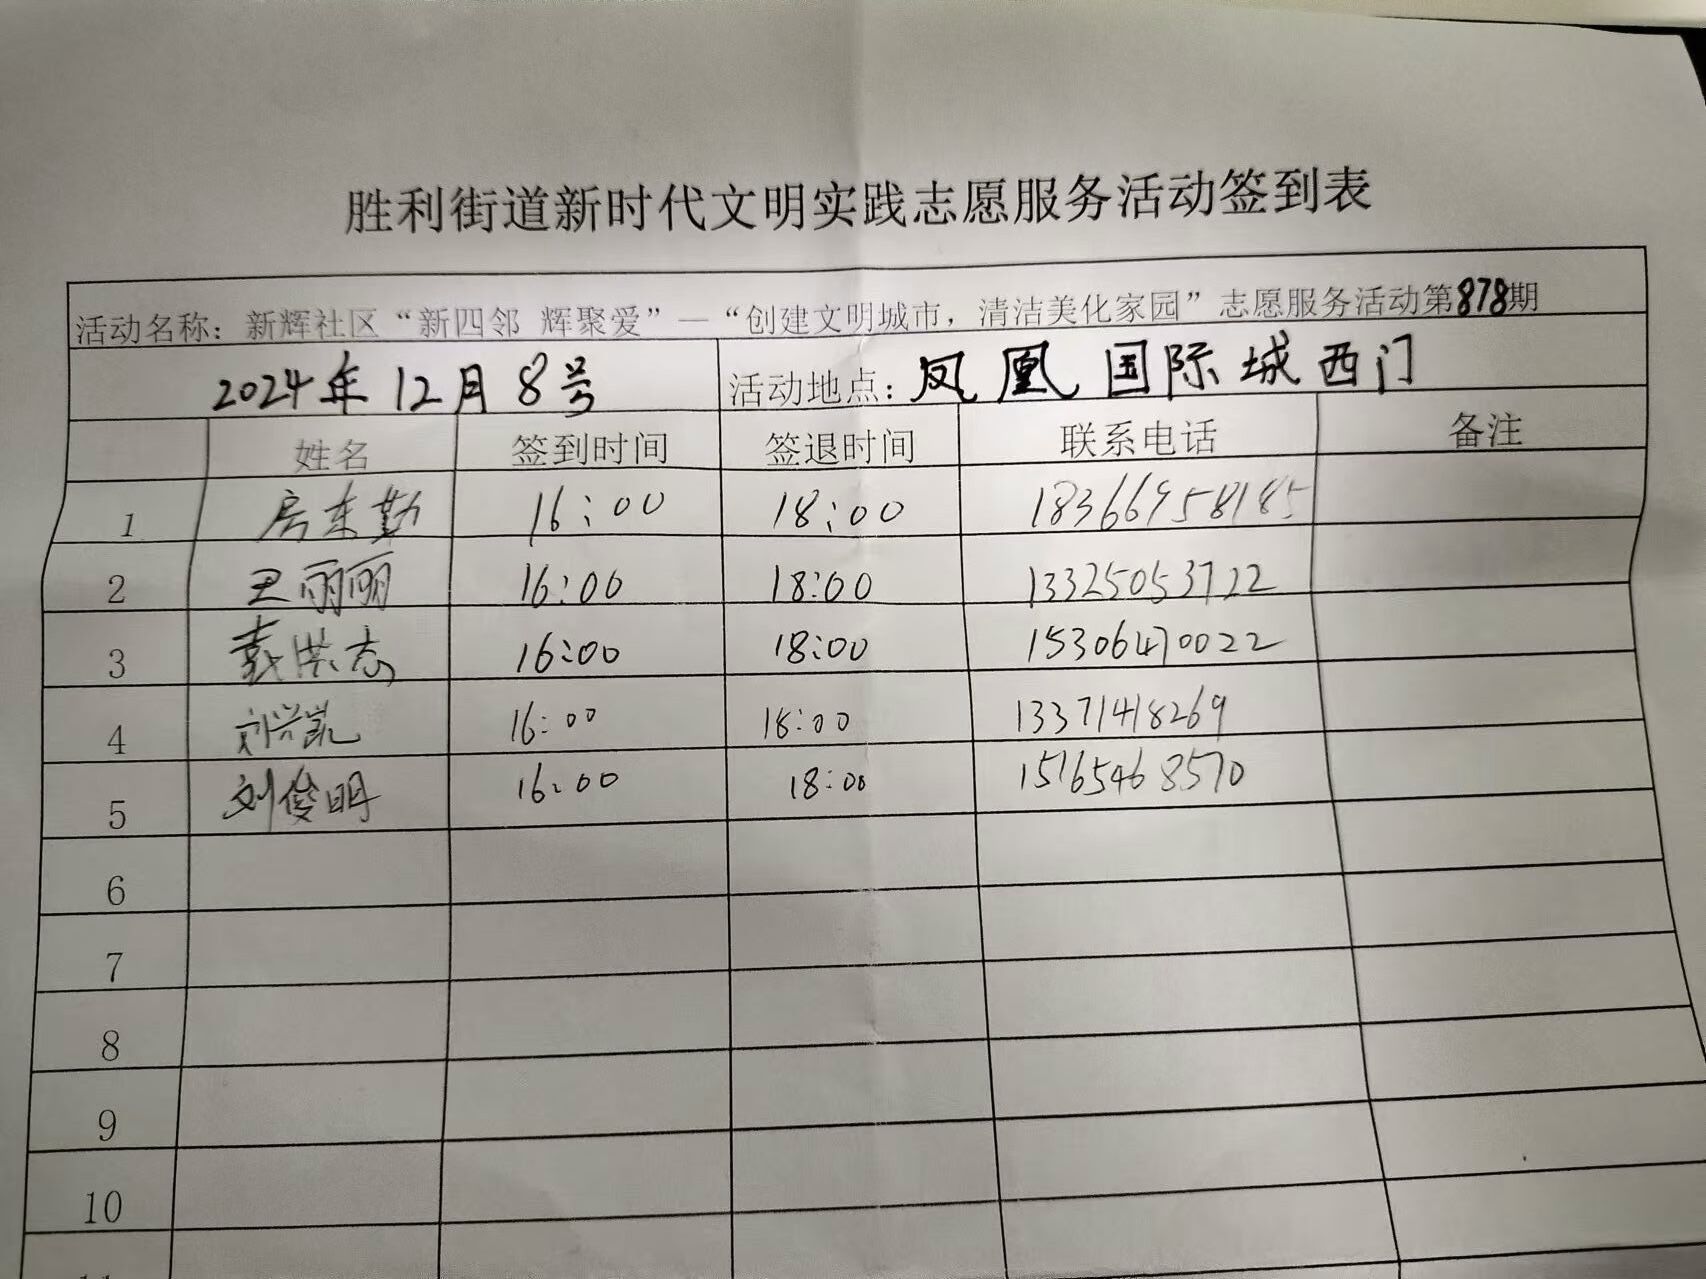 胜利街道新时代文明实践志愿服务活动签到表
活动名称：新辉社区“新四邻 辉聚爱”—“创建文明城市，清洁美化家园”志愿服务活动第878期
2024年12月8号 活动地点：凤凰国际城西门
姓名 签到时间 签退时间 联系电话 备注
1 房东勤 16:00 18:00 18366958185
2 王丽丽 16:00 18:00 13325053722
3 袁洪志 16:00 18:00 15306470022
4 刘兴凯 16:00 18:00 13371418269
5 刘俊明 16:00 18:00 15165468570
6
7
8
9
10